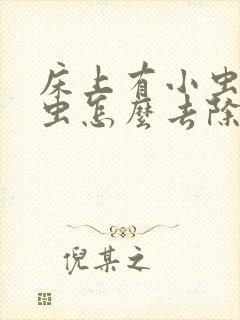 床上有小虫
虫怎麼去除
倪某之